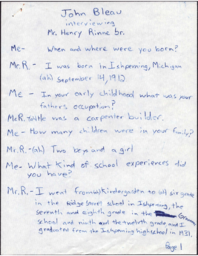 John Bleau
interviewing
Mr. Henry Rinne Sr.
Me- When and where were you born?
Mr.R.- I was born in Ishpeming, Michigan
(ah) September 14, 1913
Me- In your early childhood what was your
fathers occupation?
Mr.R. was a carpenter builder.
Me- How many children were in your family?
Mr.R.-(ah) Two boys and a girl
Me- What kind of school experiences did
you have?
Mr.R.- I went from Kindergarten to sixth grade
in the school in Ishpeming, the
seventh and eighth grade in the Grammar
school and ninth and the twelfth grade and I
graduated from the Ishpeming high school in 1931.
Page 1